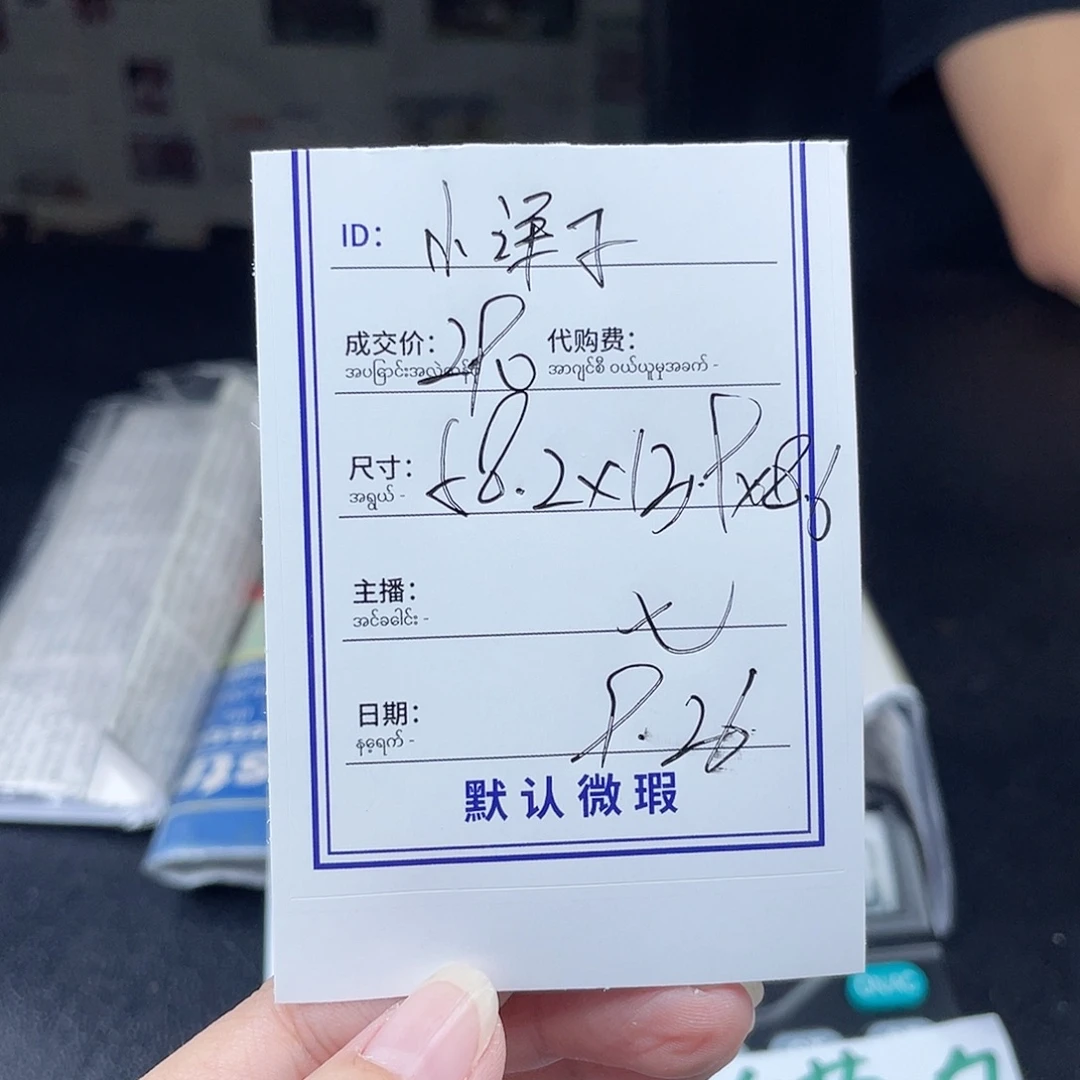 ID: 小洋子
成交价: 290 代购费:
အပြောင်းအလဲတန်ဖိုး အာဂျင်စီ ဝယ်ယူမှုအခက် -
尺寸: 58.2×12.9×8.6
အရွယ် -
主播:
အင်ခေါင်း -
日期: 9.26
နေ့ရက် -
默认微瑕